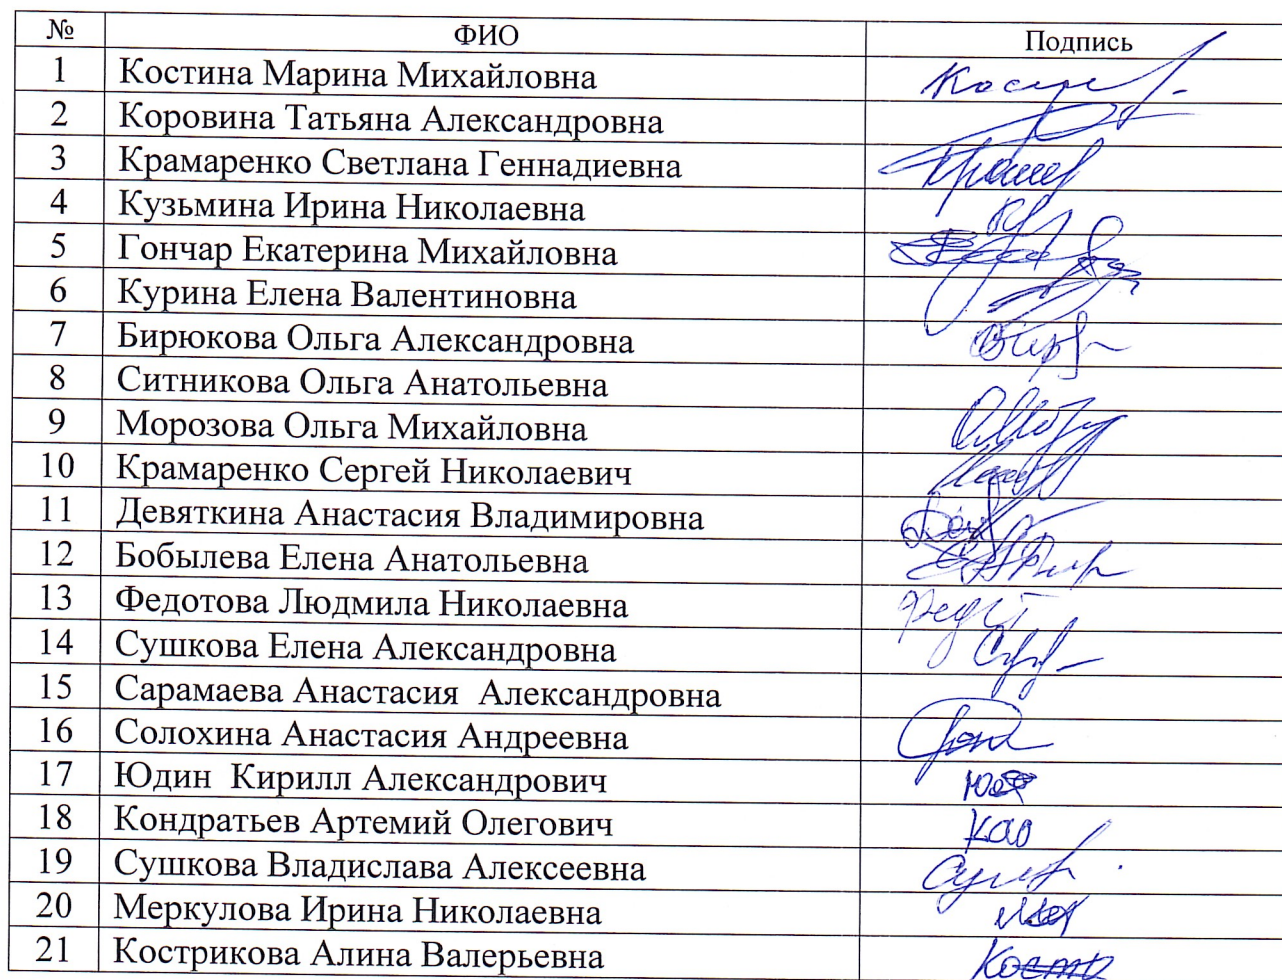 № ФИО Подпись
1 Костина Марина Михайловна
2 Коровина Татьяна Александровна
3 Крамаренко Светлана Геннадиевна
4 Кузьмина Ирина Николаевна
5 Гончар Екатерина Михайловна
6 Курина Елена Валентиновна
7 Бирюкова Ольга Александровна
8 Ситникова Ольга Анатольевна
9 Морозова Ольга Михайловна
10 Крамаренко Сергей Николаевич
11 Девяткина Анастасия Владимировна
12 Бобылева Елена Анатольевна
13 Федотова Людмила Николаевна
14 Сушкова Елена Александровна
15 Сарамаева Анастасия Александровна
16 Солохина Анастасия Андреевна
17 Юдин Кирилл Александрович
18 Кондратьев Артемий Олегович КАО
19 Сушкова Владислава Алексеевна
20 Меркулова Ирина Николаевна
21 Кострикова Алина Валерьевна